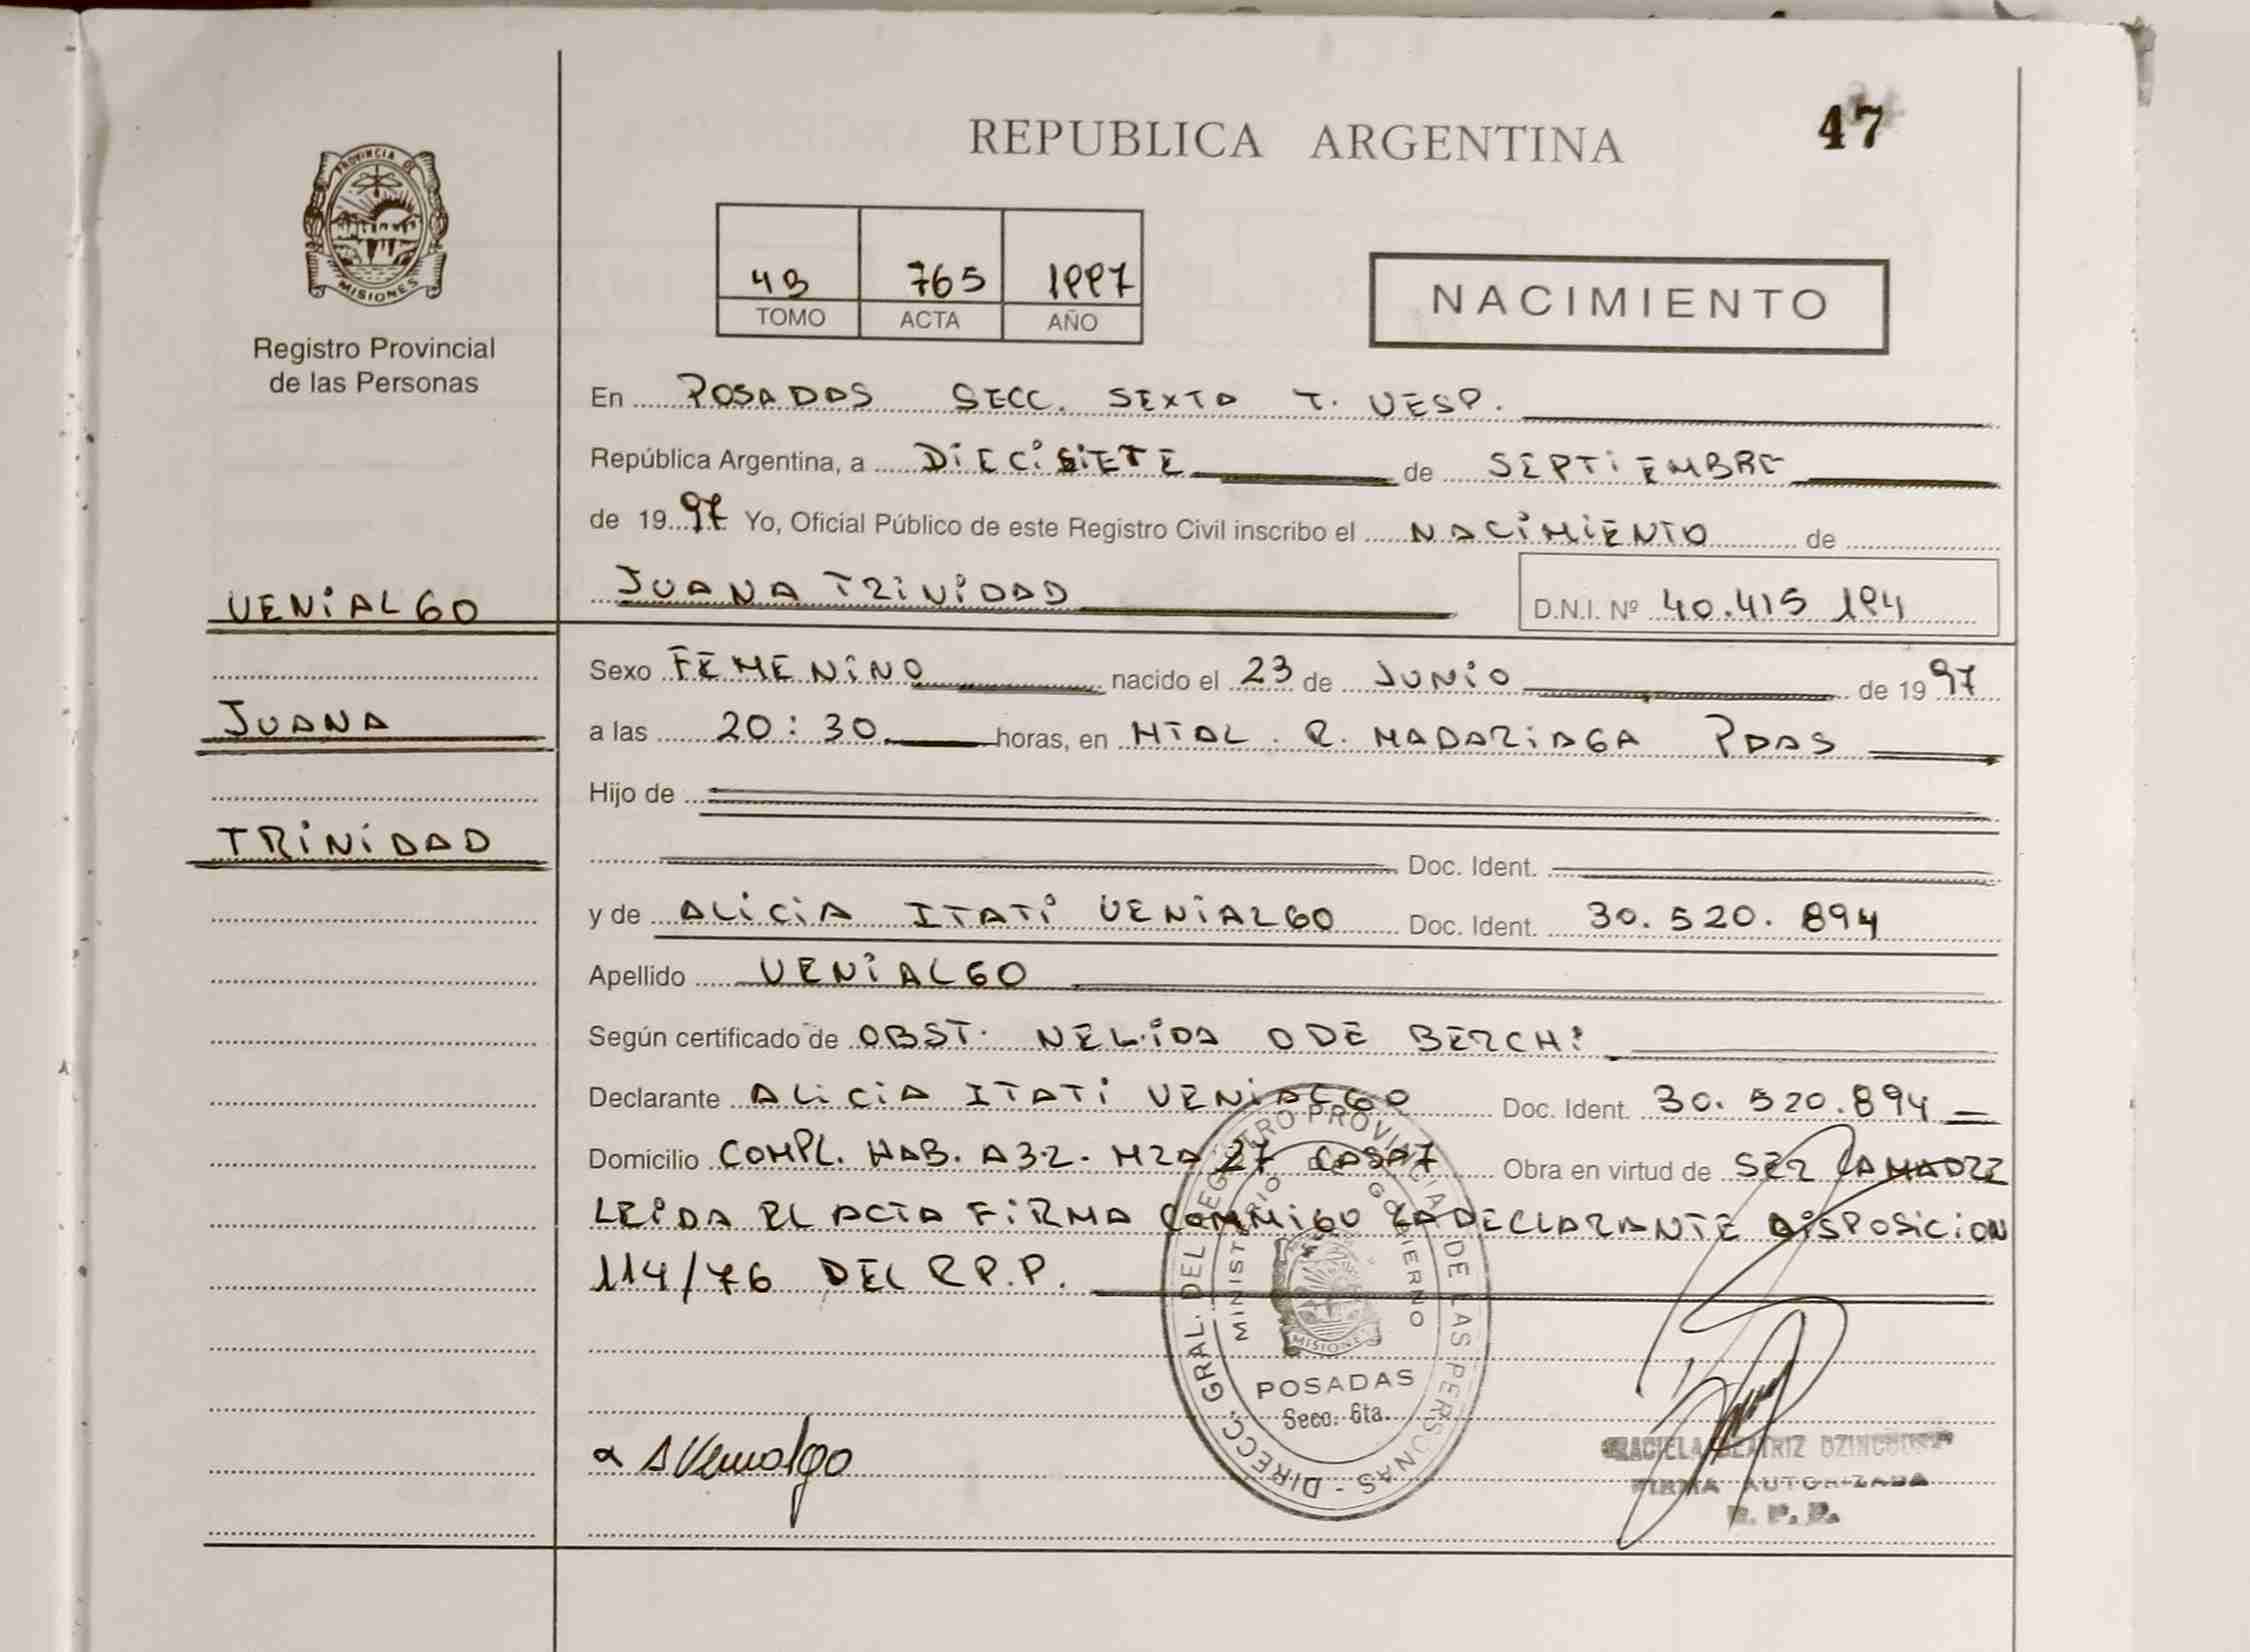 REPUBLICA ARGENTINA
47
PROVINCIA DE
MISIONES
Registro Provincial
de las Personas
4B 765 1997
TOMO ACTA AÑO
NACIMIENTO
En POSADAS SECC. SEXTA T. VESP.
República Argentina, a DIECISIETE de SEPTIEMBRE
de 1997 Yo, Oficial Público de este Registro Civil inscribo el NACIMIENTO de
JUANA TRINIDAD
D.N.I. Nº 40.415 194
VENIALGO
JUANA
TRINIDAD
Sexo FEMENINO nacido el 23 de JUNIO de 1997
a las 20:30 horas, en HTAL. R. MADARIAGA PDAS
Hijo de
Doc. Ident.
y de ALICIA ITATI VENIALGO Doc. Ident. 30.520.894
Apellido VENIALGO
Según certificado de OBST. NELIDA ODE BERCHI
Declarante ALICIA ITATI VENIALGO Doc. Ident. 30.520.894
Domicilio COMPL. HAB. A32. MZA 27 CASA7 Obra en virtud de SER LA MADRE
LEIDA EL ACTA FIRMA CONMIGO LA DECLARANTE DISPOSICION
114/76 DEL R.P.P.
DIRECC. GRAL. DEL REGISTRO PROVINCIAL DE LAS PERSONAS
MINISTERIO DE GOBIERNO
MISIONES
POSADAS
Secc. 6ta.
A Venialgo
GRACIELA BEATRIZ
FIRMA AUTORIZADA
R. P. P.